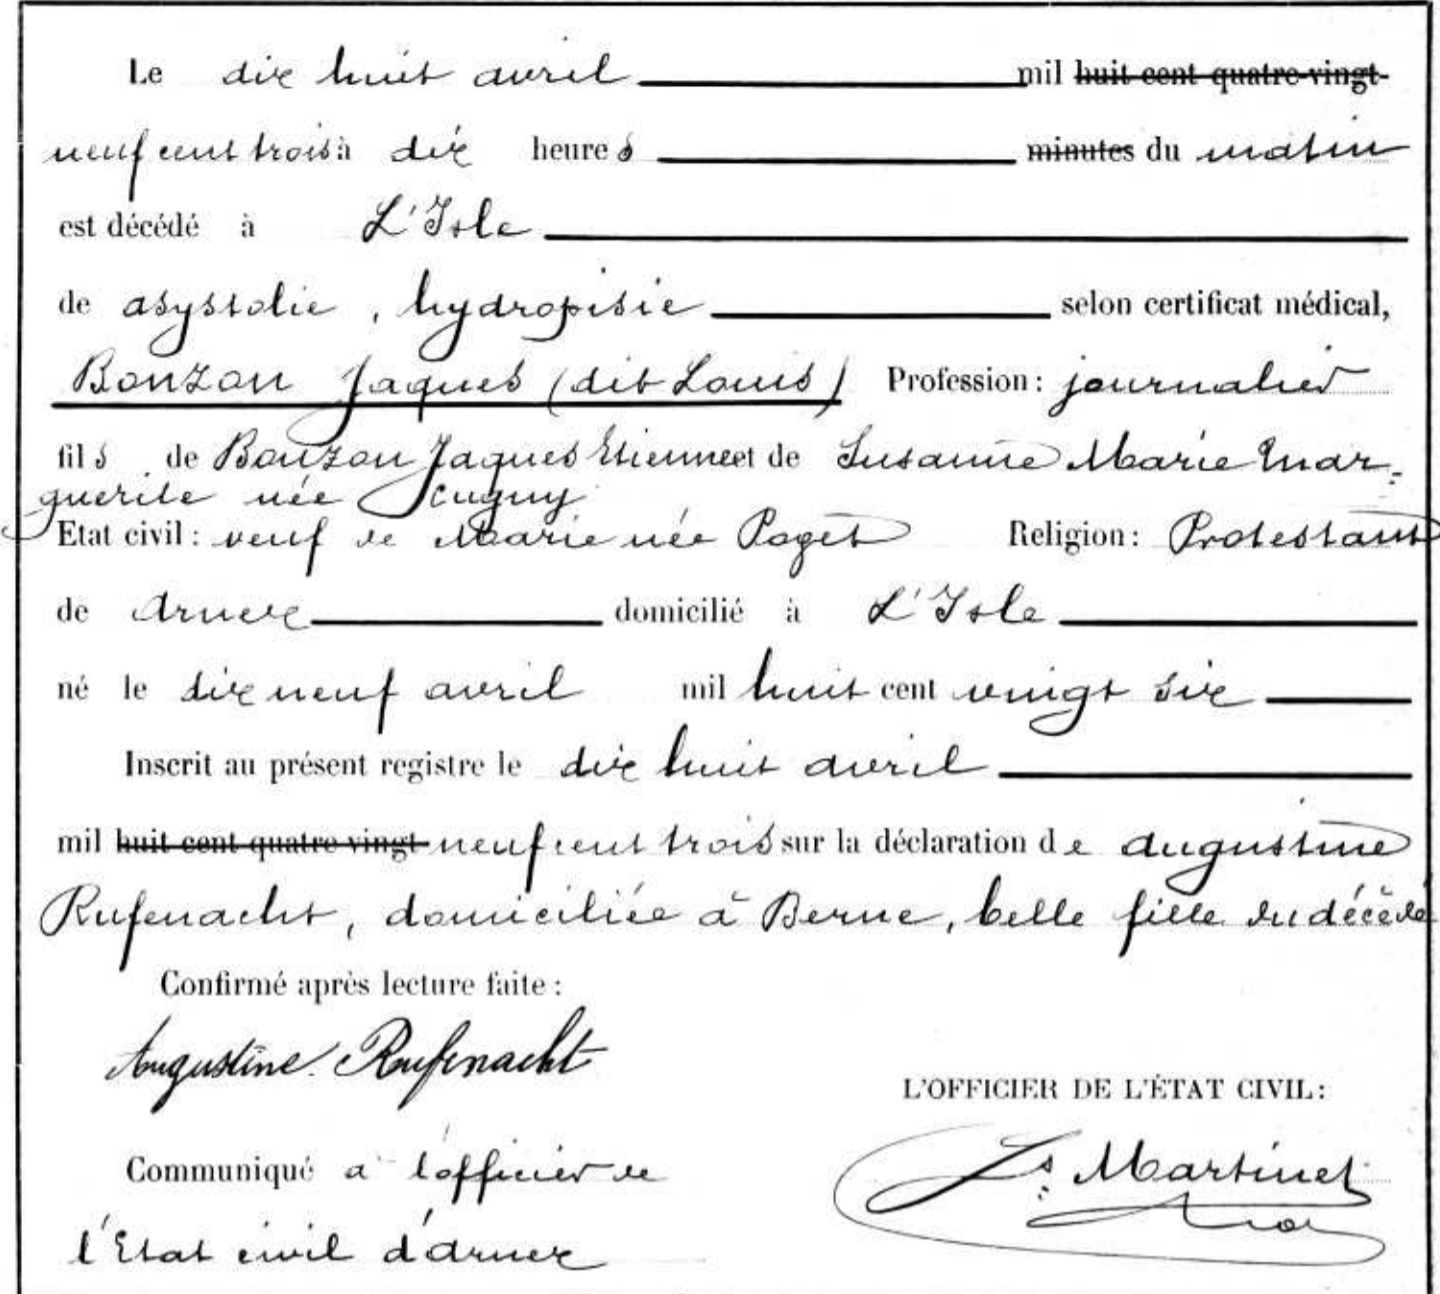 Le dix huit avril mil huit cent quatre-vingt-
neuf cent trois à dix heures minutes du matin
est décédé à L'Isle
de asystolie, hydropisie selon certificat médical,
Bonzon Jaques (dit Louis) Profession: journalier
fils de Bonzon Jaques Etienne et de Susanne Marie Mar-
guerite née Cugny
Etat civil: veuf de Marie née Paget Religion: Protestant
de Arnex domicilié à L'Isle
né le dix neuf avril mil huit cent vingt six
Inscrit au présent registre le dix huit avril
mil huit cent quatre vingt neuf cent trois sur la déclaration de Augustine
Rufenacht, domiciliée à Berne, belle fille du décédé
Confirmé après lecture faite:
Augustine Rufenacht
L'OFFICIER DE L'ÉTAT CIVIL:
Communiqué à l'officier de
Ls Martinet
l'Etat civil d'Arnex